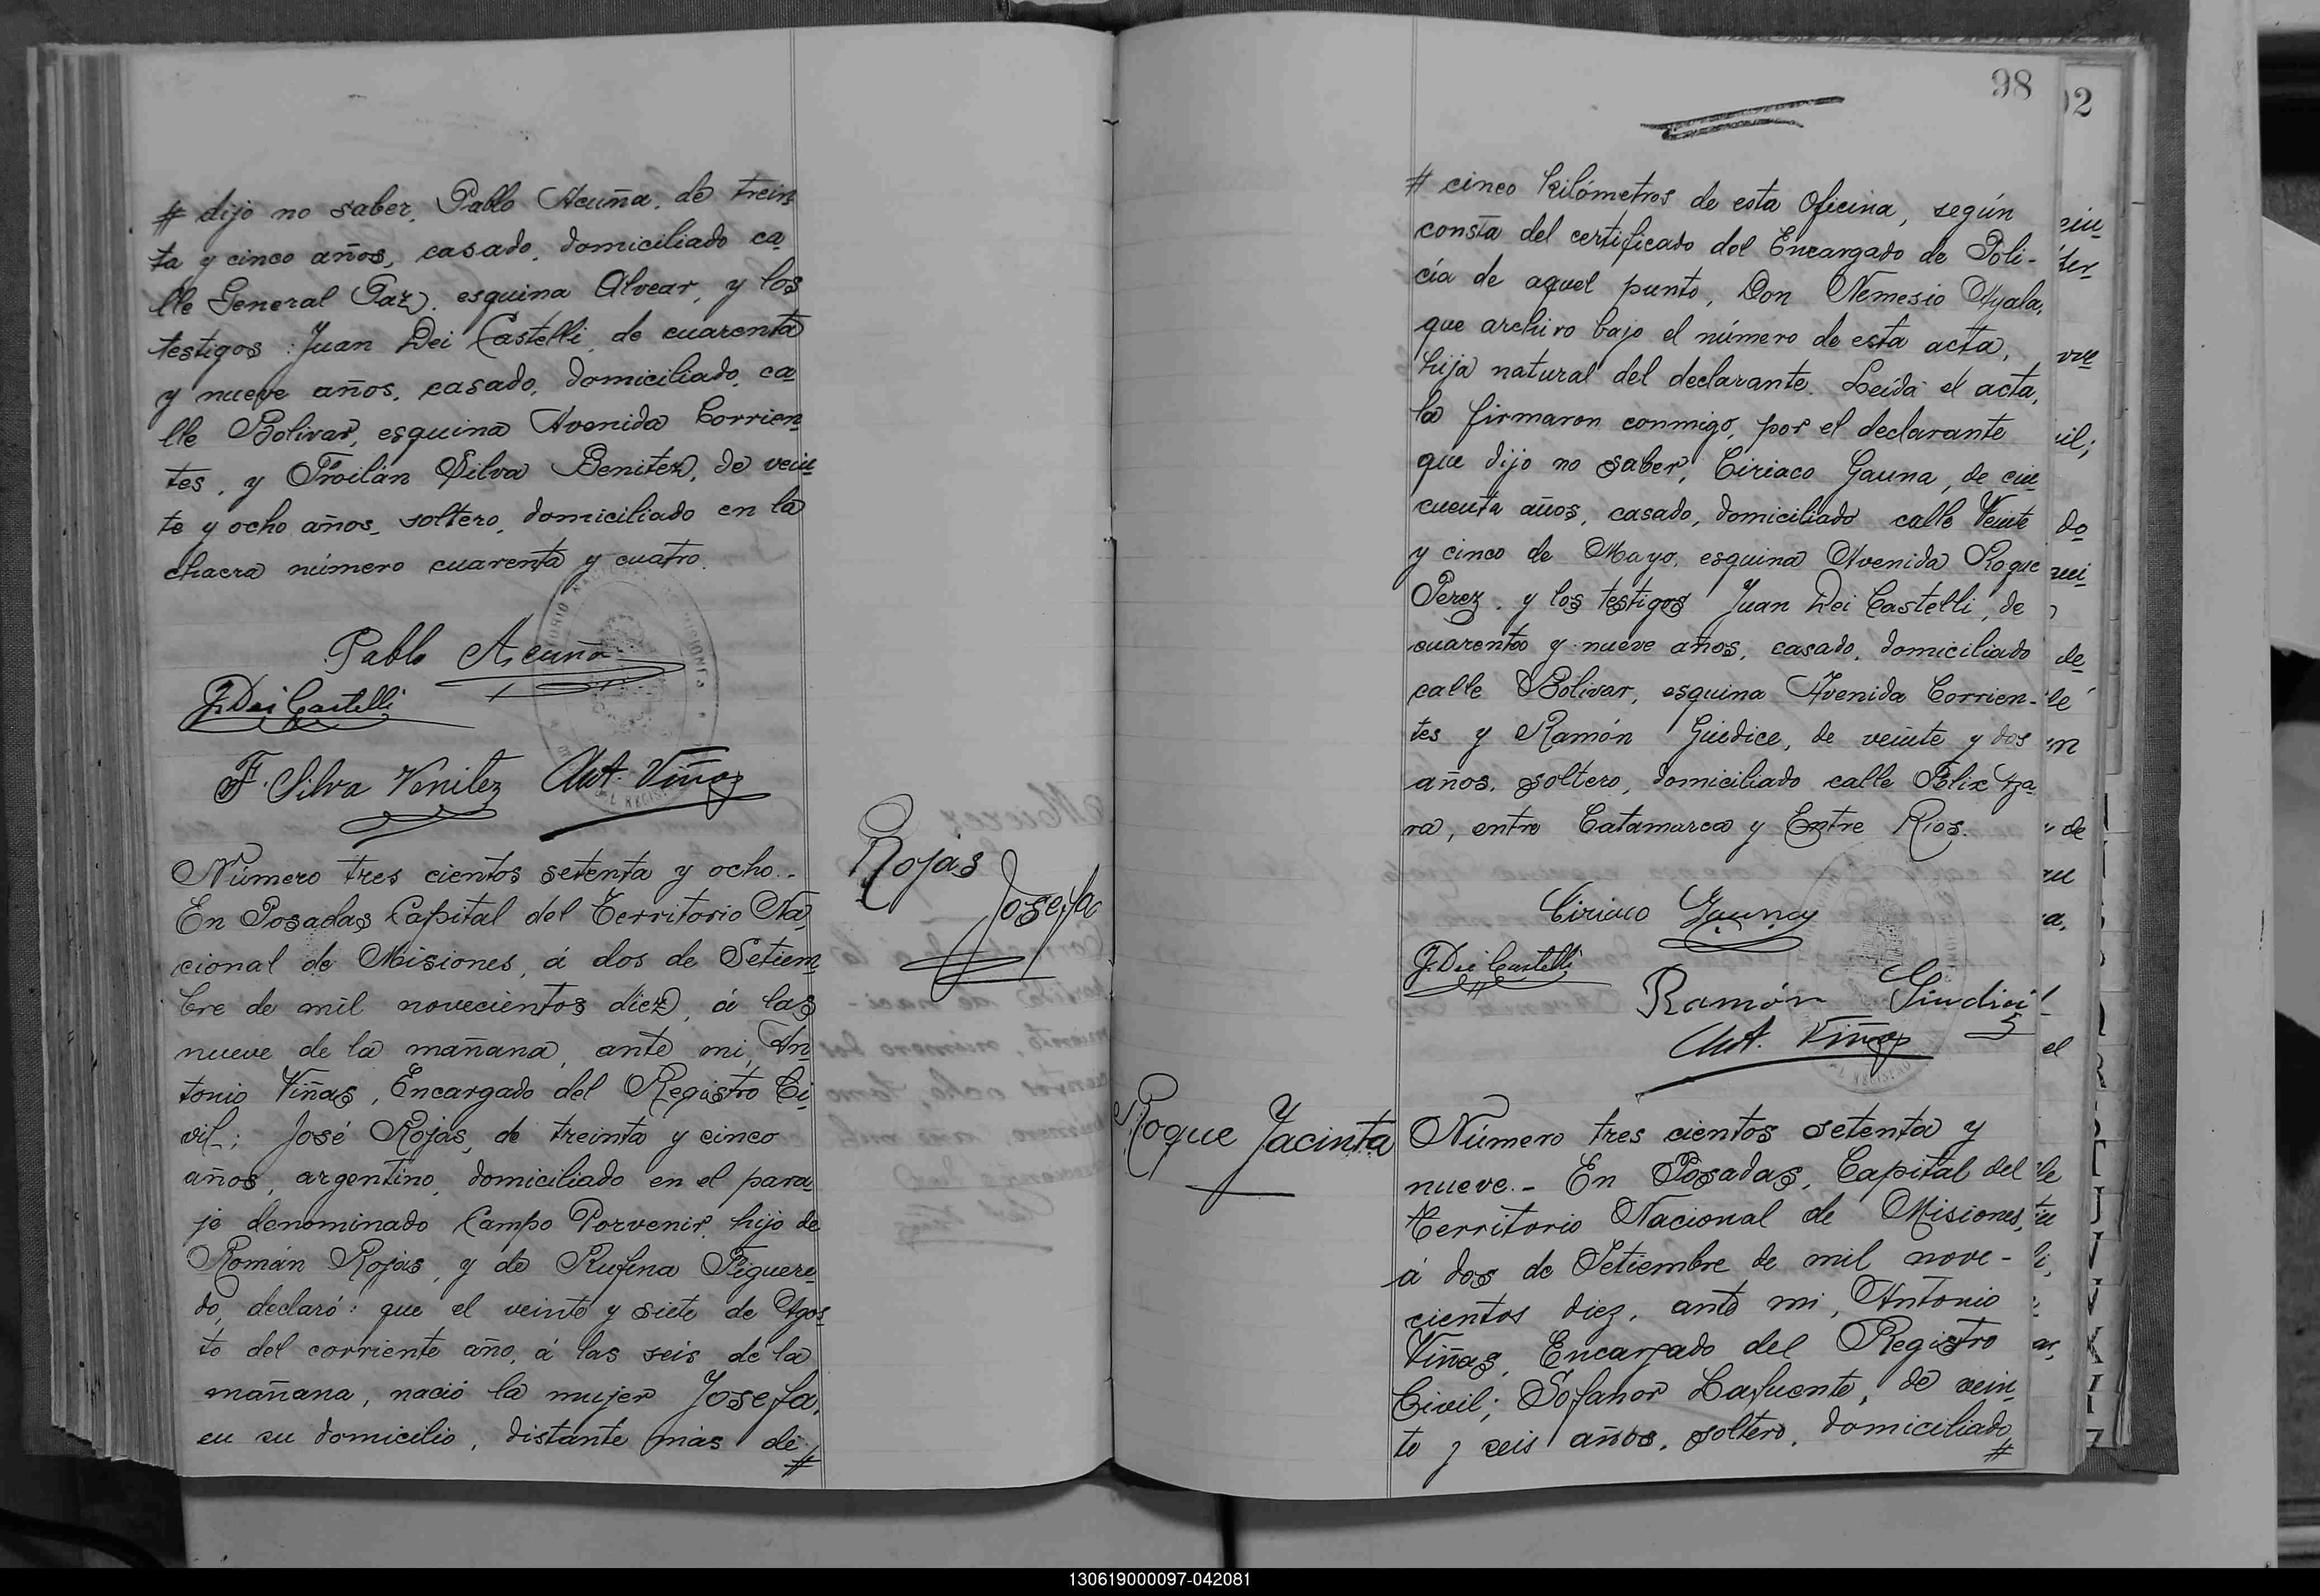 # dijo no saber, Pablo Acuña, de trein
ta y cinco años, casado, domiciliado ca
lle General Paz, esquina Alvear, y los
testigos: Juan Dei Castelli, de cuarenta
y nueve años, casado, domiciliado, ca
lle Bolivar, esquina Avenida Corrien
tes, y Froilán Silva Benitez, de vein
te y ocho años, soltero, domiciliado en la
chacra número cuarenta y cuatro.
Pablo Acuña
J. Dei Castelli
F. Silva Venitez Ant. Viñas
Rojas
Josefa
Número tres cientos setenta y ocho.-
En Posadas Capital del Territorio Na
cional de Misiones, á dos de Setiem
bre de mil novecientos diez, á las
nueve de la mañana, ante mi, An
tonio Viñas, Encargado del Registro Ci
vil; José Rojas, de treinta y cinco
años, argentino, domiciliado en el para
je denominado Campo Porvenir, hijo de
Román Rojas, y de Rufina Figuere
do, declaró: que el veinte y siete de Agos
to del corriente año, á las seis de la
mañana, nació la mujer Josefa,
en su domicilio, distante más de
#
98
# cinco kilómetros de esta Oficina, según
consta del certificado del Encargado de Poli-
cía de aquel punto, Don Nemesio Ayala,
que archivo bajo el número de esta acta,
hija natural del declarante. Leída el acta,
la firmaron conmigo, por el declarante
que dijo no saber, Ciriaco Gauna, de cin
cuenta años, casado, domiciliado calle Veinte
y cinco de Mayo, esquina Avenida Roque
Perez, y los testigos Juan Dei Castelli, de
cuarenta y nueve años, casado, domiciliado
calle Bolivar, esquina Avenida Corrien-
tes y Ramón Giudice, de veinte y dos
años, soltero, domiciliado calle Felix Aza
ra, entre Catamarca y Entre Rios.
Ciriaco Gauna
J. Dei Castelli
Ramón Giudici
Ant. Viñas
Roque Jacinta
Número tres cientos setenta y
nueve.- En Posadas, Capital del
Territorio Nacional de Misiones,
á dos de Setiembre de mil nove-
cientos diez, ante mi, Antonio
Viñas, Encargado del Registro
Civil; Sofanor Lafuente, de vein
te y seis años, soltero, domiciliado
#
130619000097-042081